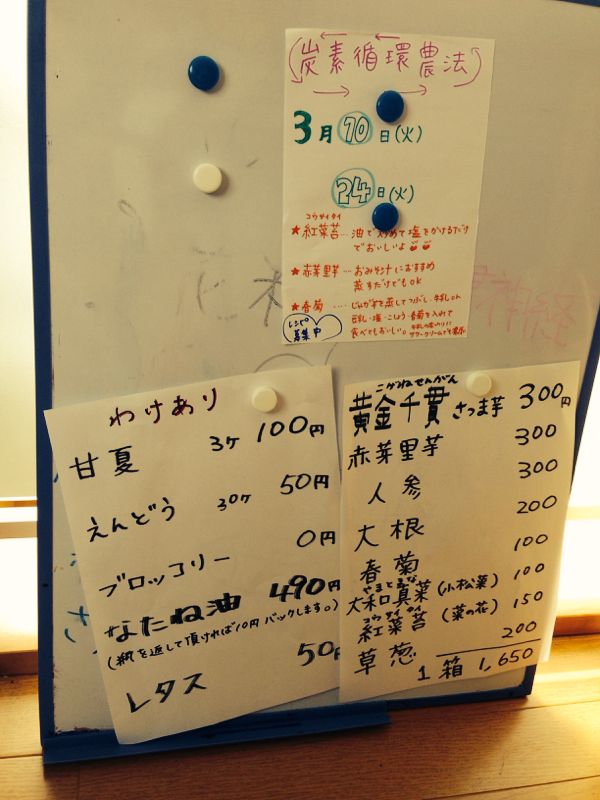 炭素循環農法
3月10日(火)
24日(火)
コウサイタイ
★紅菜苔…油で炒めて塩をかけるだけ
でおいしいよ
★赤芽里芋…おみそ汁におすすめ
蒸すだけでもOK
★春菊…じゃが芋を蒸してつぶし、牛乳or
豆乳・塩・こしょう・春菊を入れて
食べてもおいしい。
レシピ
募集中
わけあり
甘夏 3ヶ 100円
えんどう 30ヶ 50円
ブロッコリー 0円
なたね油 490円
(瓶を返して頂ければ10円バックします。)
レタス 50円
こがねせんがん
黄金千貫さつま芋 300円
赤芽里芋 300
人参 300
大根 200
春菊 100
やまとまな
大和真菜(小松菜) 100
コウサイタイ
紅菜苔(菜の花) 150
草葱 200
1箱 1,650